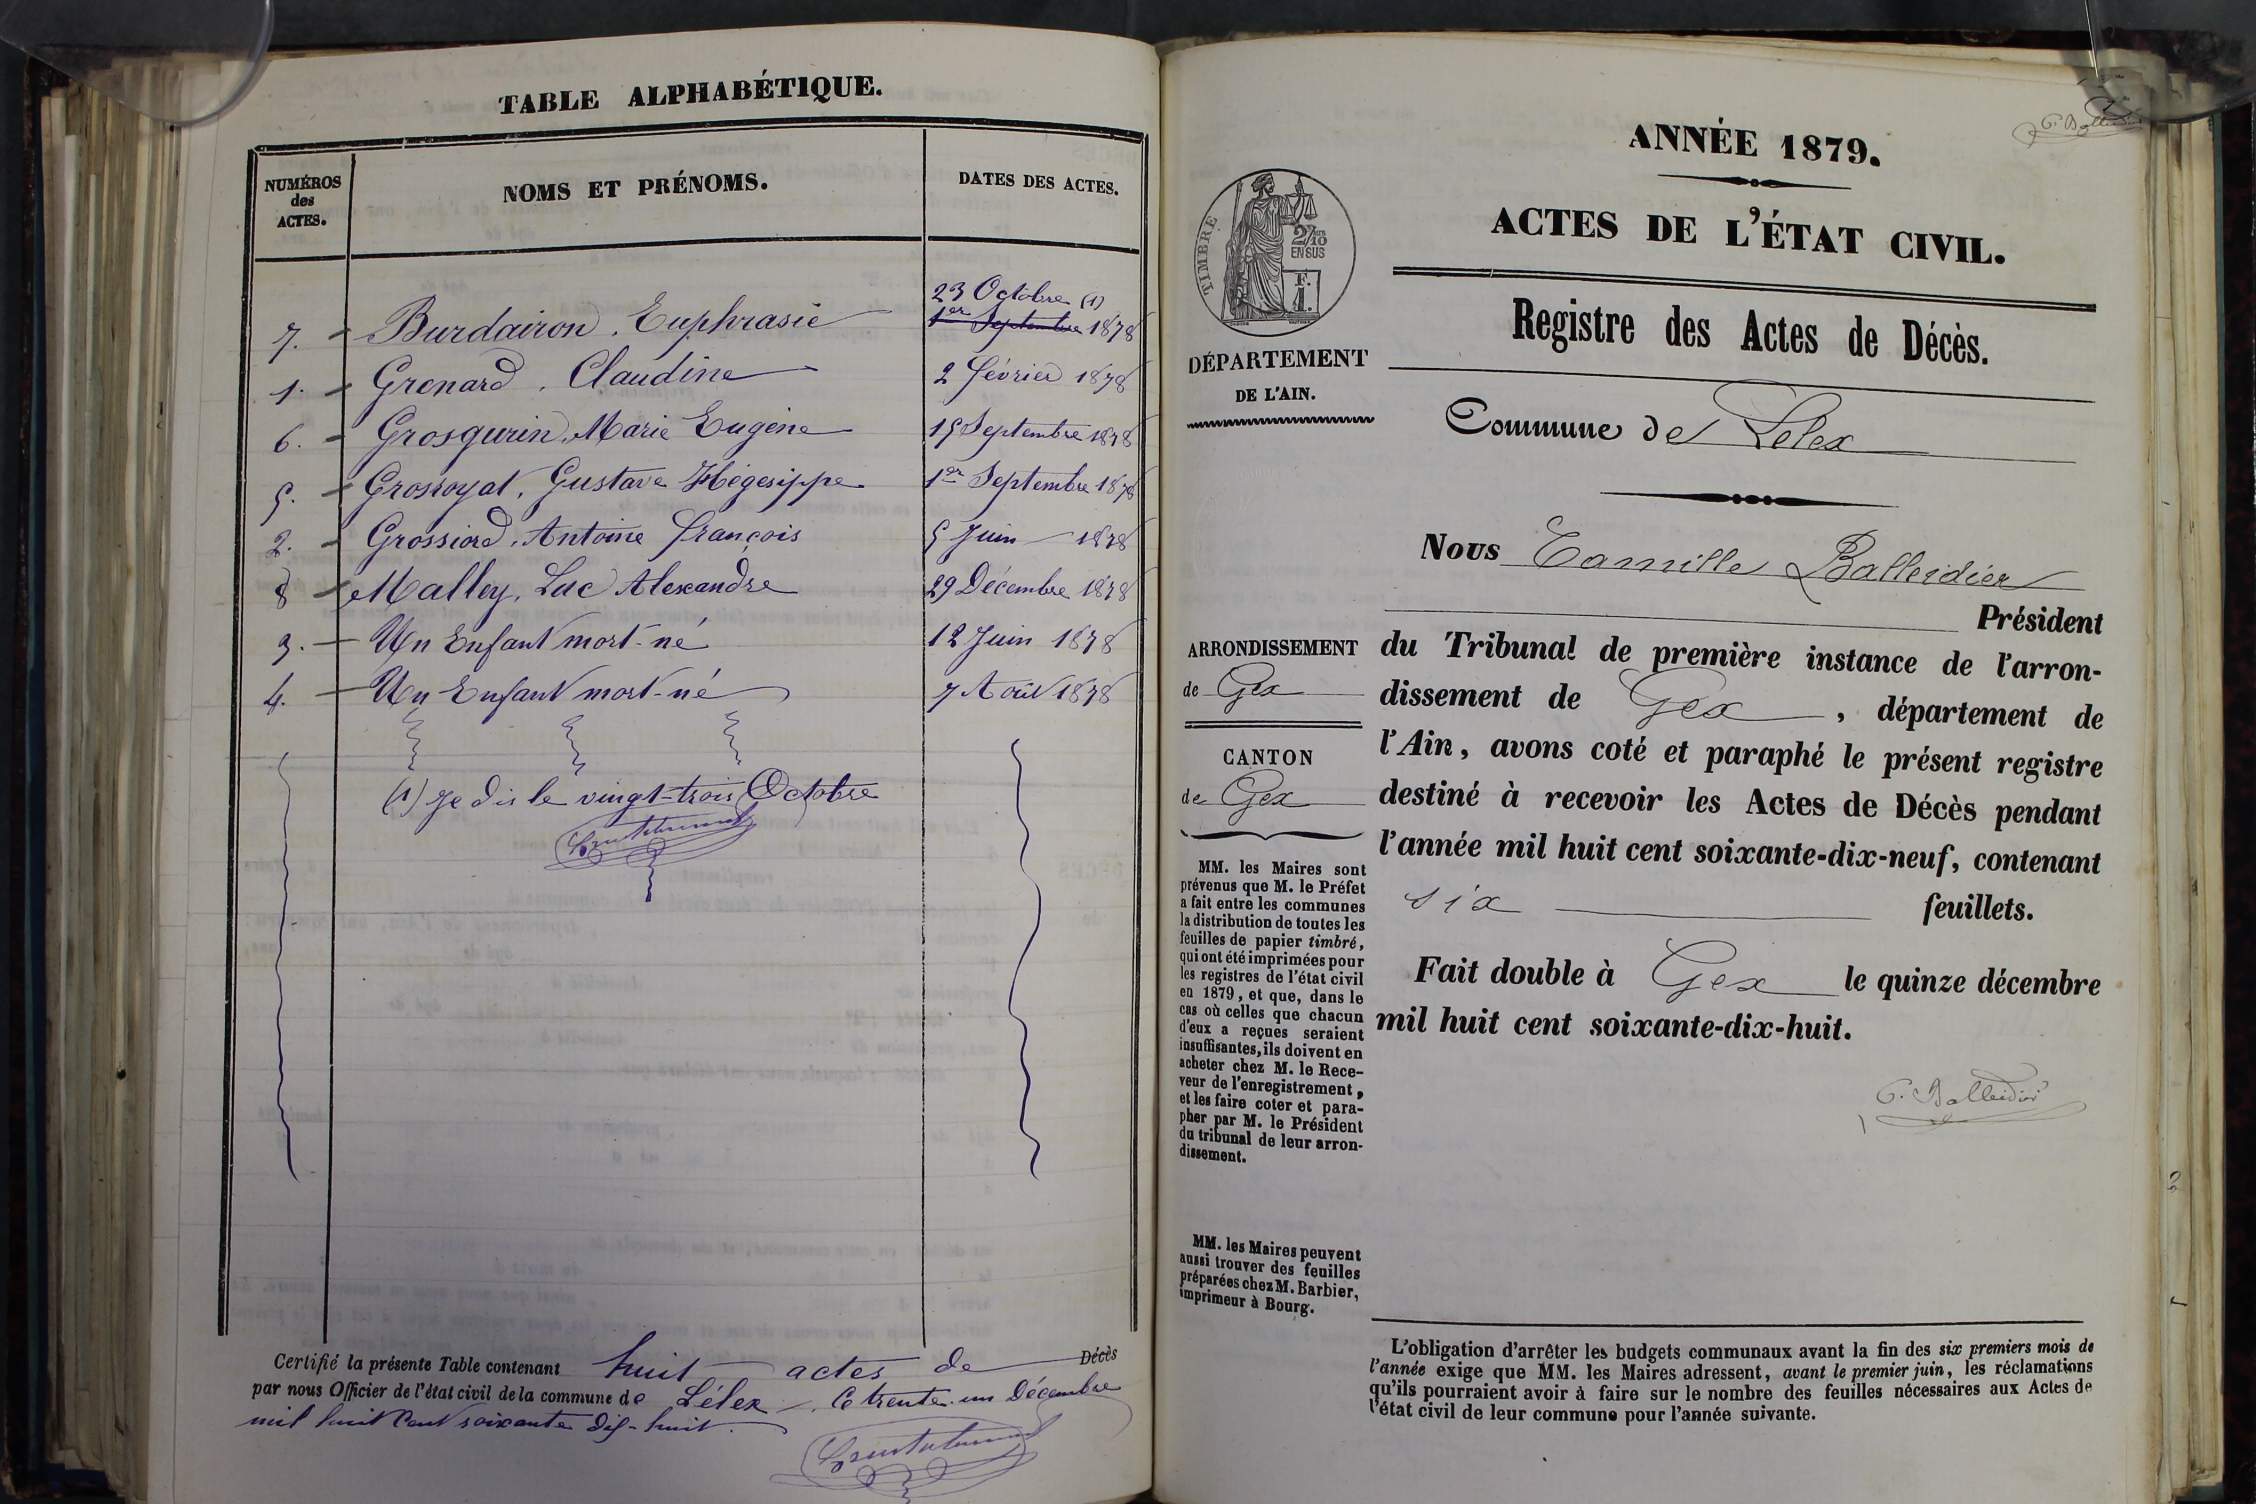 TABLE ALPHABÉTIQUE.
NUMÉROS
des
ACTES.
NOMS ET PRÉNOMS.
DATES DES ACTES.
23 Octobre (1)
7. Burdairon, Euphrasie 1er Septembre 1878
1. Grenard, Claudine 2 février 1878
6. Grosgurin, Marie Eugène 15 Septembre 1878
5. Grosroyat, Gustave Hégesippe 1er Septembre 1878
2. Grossiord, Antoine françois 5 Juin 1878
8 Malley, Luc Alexandre 29 Décembre 1878
3. Un Enfant mort-né 12 Juin 1878
4. Un Enfant mort-né 7 Août 1878
(1) je dis le vingt-trois Octobre
Certifié la présente Table contenant huit actes de Décès
par nous Officier de l'état civil de la commune de Lélex, le trente-un Décembre
mil huit Cent soixante dix-huit.
C. Balleidier
ANNÉE 1879.
ACTES DE L'ÉTAT CIVIL.
TIMBRE
2/10
EN SUS
F.
1.
Registre des Actes de Décès.
DÉPARTEMENT
DE L'AIN.
Commune de Lelex
Nous Camille Balleidier
Président
du Tribunal de première instance de l'arron-
dissement de Gex, département de
l'Ain, avons coté et paraphé le présent registre
destiné à recevoir les Actes de Décès pendant
l'année mil huit cent soixante-dix-neuf, contenant
six feuillets.
Fait double à Gex le quinze décembre
mil huit cent soixante-dix-huit.
C. Balleidier
ARRONDISSEMENT
de Gex
CANTON
de Gex
MM. les Maires sont
prévenus que M. le Préfet
a fait entre les communes
la distribution de toutes les
feuilles de papier timbré,
qui ont été imprimées pour
les registres de l'état civil
en 1879, et que, dans le
cas où celles que chacun
d'eux a reçues seraient
insuffisantes, ils doivent en
acheter chez M. le Rece-
veur de l'enregistrement,
et les faire coter et para-
pher par M. le Président
du tribunal de leur arron-
dissement.
MM. les Maires peuvent
aussi trouver des feuilles
préparées chez M. Barbier,
imprimeur à Bourg.
L'obligation d'arrêter les budgets communaux avant la fin des six premiers mois de
l'année exige que MM. les Maires adressent, avant le premier juin, les réclamations
qu'ils pourraient avoir à faire sur le nombre des feuilles nécessaires aux Actes de
l'état civil de leur commune pour l'année suivante.